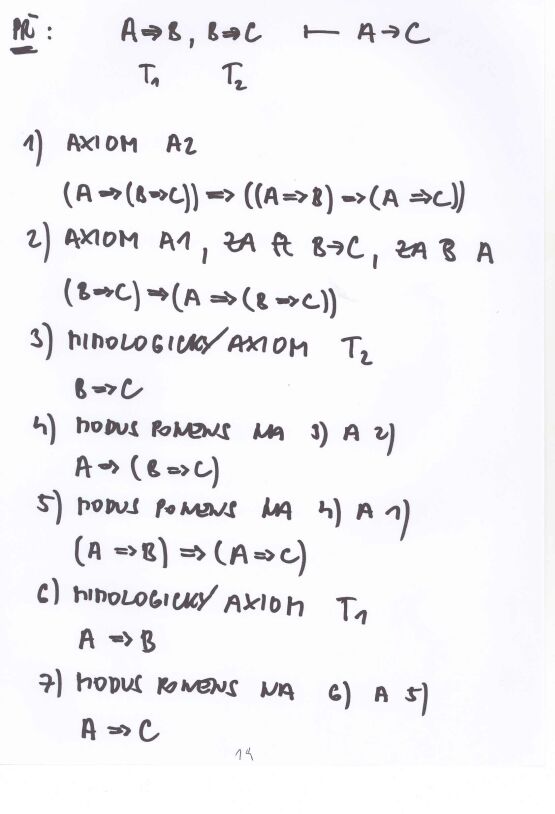 PŘ: A⇒B, B⇒C ⊢ A→C
T₁ T₂
1) AXIOM A2
(A⇒(B⇒C))⇒((A⇒B)⇒(A⇒C))
2) AXIOM A1, ZA A B→C, ZA B A
(B⇒C)⇒(A⇒(B⇒C))
3) MIMOLOGICKÝ AXIOM T₂
B⇒C
4) MODUS PONENS NA 3) A 2)
A⇒(B⇒C)
5) MODUS PONENS NA 4) A 1)
(A⇒B)⇒(A⇒C)
6) MIMOLOGICKÝ AXIOM T₁
A⇒B
7) MODUS PONENS NA 6) A 5)
A⇒C